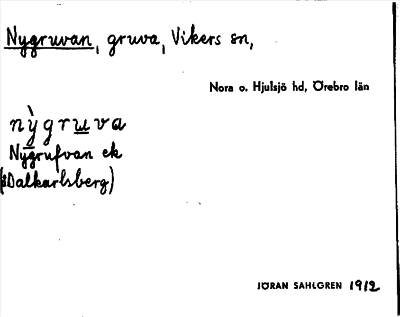 Nygruvan, gruva, Vikers sn,
Nora o. Hjulsjö hd, Örebro län
nỳgruva
Nygrufvan ek
(i Dalkarlsberg)
JÖRAN SAHLGREN 1912